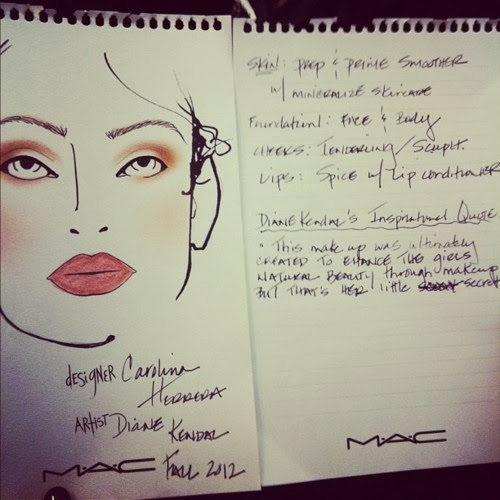 designer Carolina
Herrera
Artist Diane
Kendal
MAC Fall 2012
Skin: Prep & Prime Smoother
w/ Mineralize Skincare
Foundation: Face & Body
Cheeks: Tenderling/Sculpt.
Lips: Spice w/ Lip conditioner
Diane Kendal's Inspirational Quote
"This make up was ultimately
created to enhance the girls
natural beauty through makeup
but that's her little secret
MAC